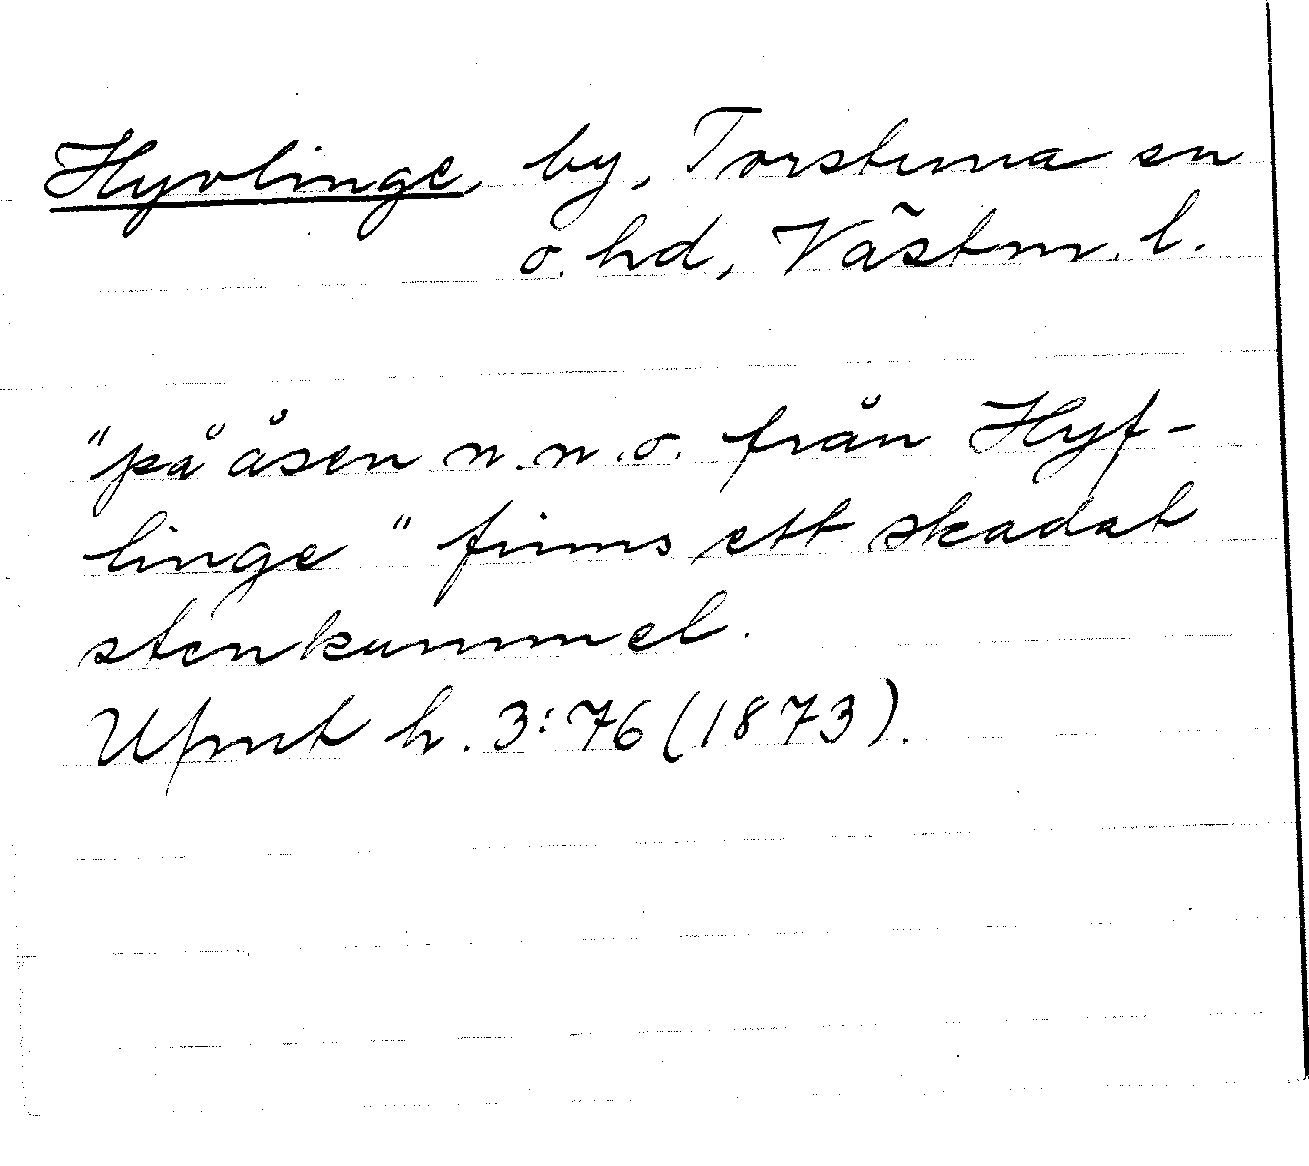 Hyvlinge, by, Torstuna sn
o. hd, Västm. l.
"på åsen n.n.o. från Hyf-
linge" finns ett skadat
stenkummel.
Ufmt h. 3:76 (1873).